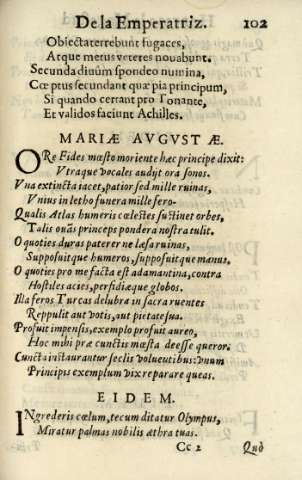 De la Emperatriz. 102
Obiectaterrebunt fugaces,
Atque metus veteres nouabunt.
Secunda diuûm spondeo numina,
Cœptus secundant quæ pia principum,
Si quando certant pro Tonante,
Et validos faciunt Achilles.
MARIÆ AVGVSTÆ.
ORe Fides mœsto moriente hæc principe dixit:
Vtraque vocales audijt ora sonos.
Vna extincta iacet, patior sed mille ruinas,
Vnius in letho funera mille fero.
Qualis Atlas humeris cœlestes sustinet orbes,
Talis ouās princeps pondera nostra tulit.
O quoties duras pateret ne læsa ruinas,
Supposuitque humeros, supposuitque manus.
O quoties pro me facta est adamantina, contra
Hostiles acies, perfidiæque globos.
Illa feros Turcas delubra in sacra ruentes
Reppulit aut votis, aut pietate sua.
Profuit impensis, exemplo profuit aureo,
Hoc mihi præ cunctis mœsta deesse queror.
Cuncta instaurantur seclis voluentibus: vnum
Principis exemplum vix reparare queas.
EIDEM.
INgrederis cœlum, tecum ditatur Olympus,
Miratur palmas nobilis æthra tuas.
Cc 2 Quò